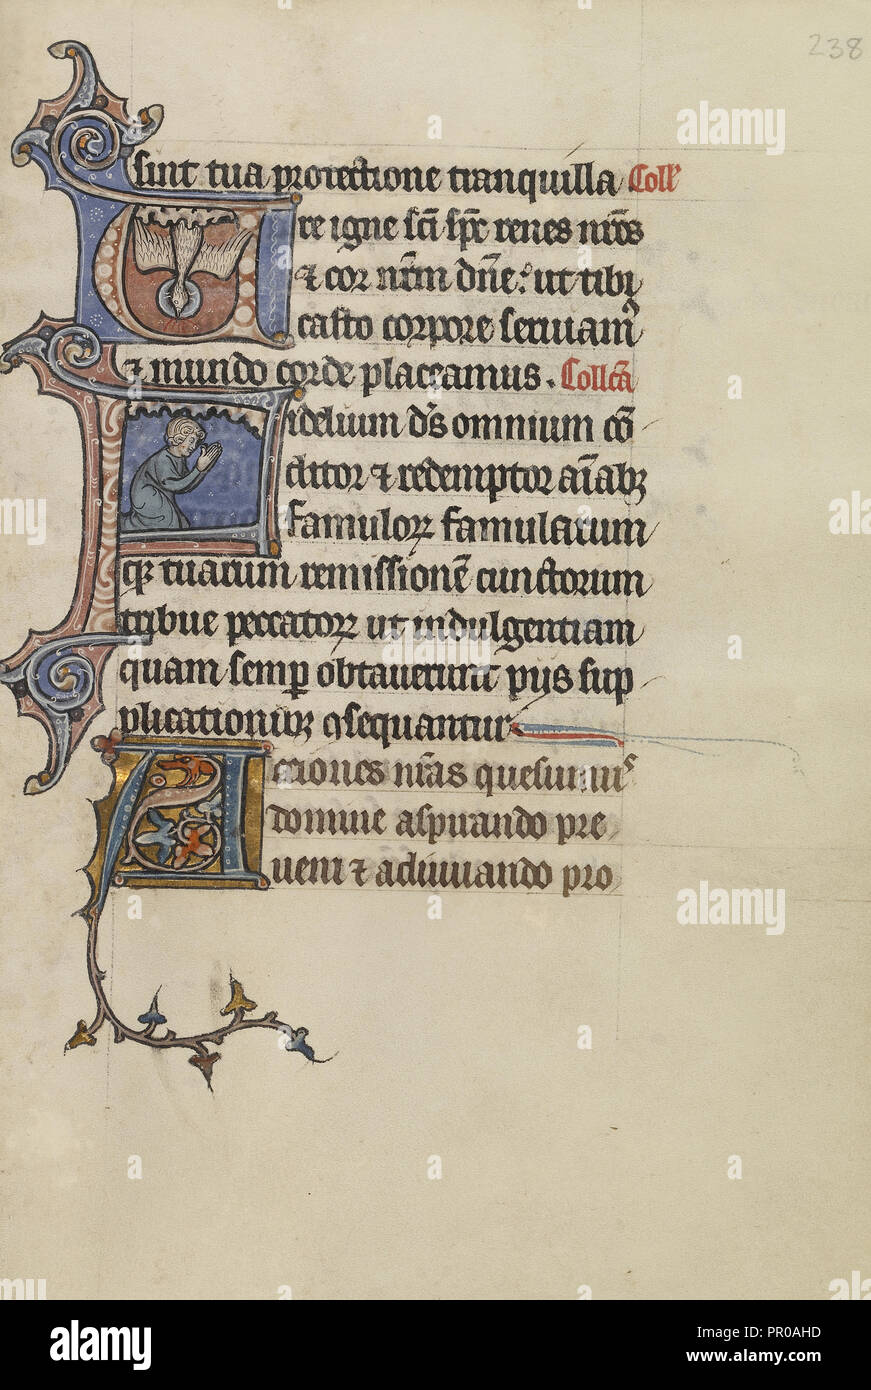 238
sint tua protectione tranquilla Coll'
Ure igne sc̄i sp̄c renes nr̄os
⁊ cor nr̄m dn̄e. ut tibi
casto corpore seruiam᷒
⁊ mundo corde placeamus. Collc̄a
Fidelium ds̄ omnium cō
ditor ⁊ redemptor aīabꝫ
famuloꝝ famularum
qꝫ tuarum remissionē cunctorum
tribue peccatoꝝ ut indulgentiam
quam semꝑ obtauerunt pijs sup
plicationibꝫ ꝯsequantur
Actiones nr̄as quesumus
domine aspirando pre
ueni ⁊ adiuuando pro
alamy
Image ID: PR0AHD
www.alamy.com